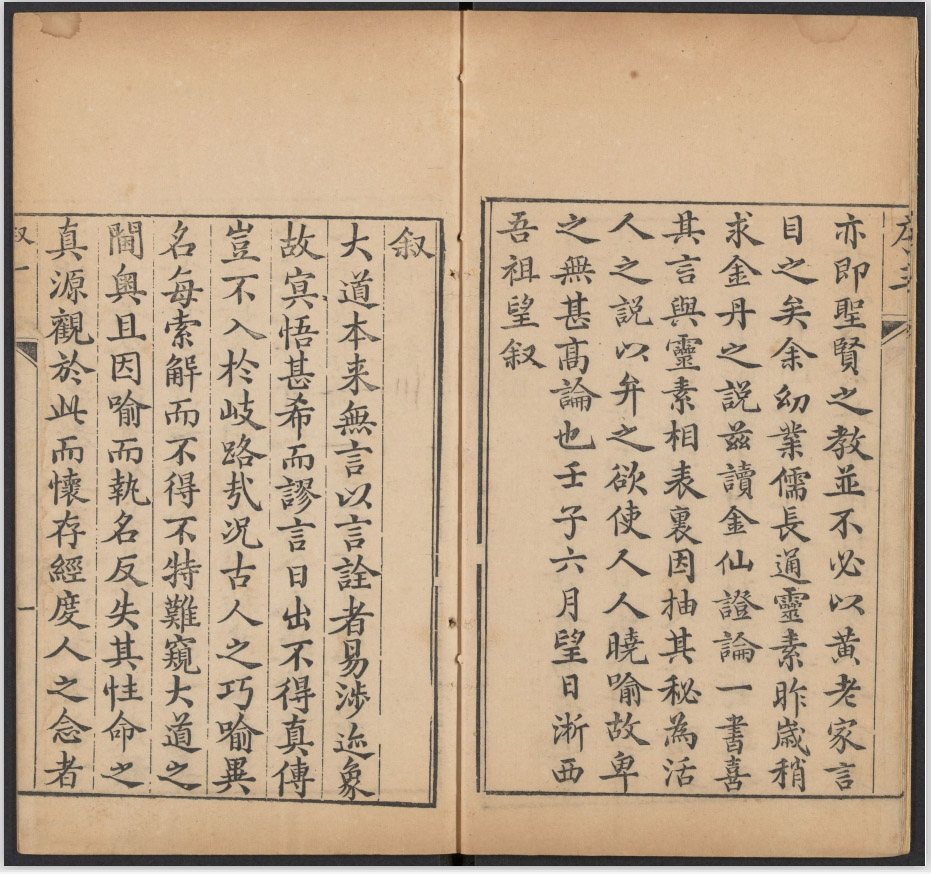 序五
亦即聖賢之教並不必以黃老家言
目之矣余幼業儒長通靈素昨歲稍
求金丹之説兹讀金仙證論一書喜
其言與靈素相表裏因抽其秘為活
人之説以弁之欲使人人曉喻故卑
之無甚髙論也壬子六月望日淅西
吾祖望叙
叙
大道本来無言以言詮者易涉迹象
故冥悟甚希而謬言日出不得真傳
豈不入於岐路㢤况古人之巧喻異
名每索解而不得不特難窺大道之
閫奥且因喻而執名反失其性命之
真源觀於此而懷存經度人之念者
叙一
一